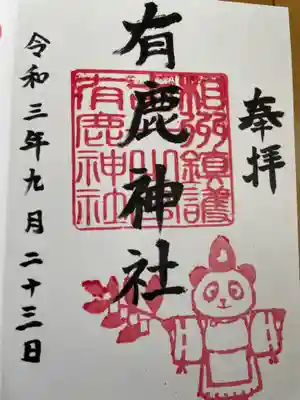 奉拝
有鹿神社
鎮護
有鹿神社
令和三年九月二十三日